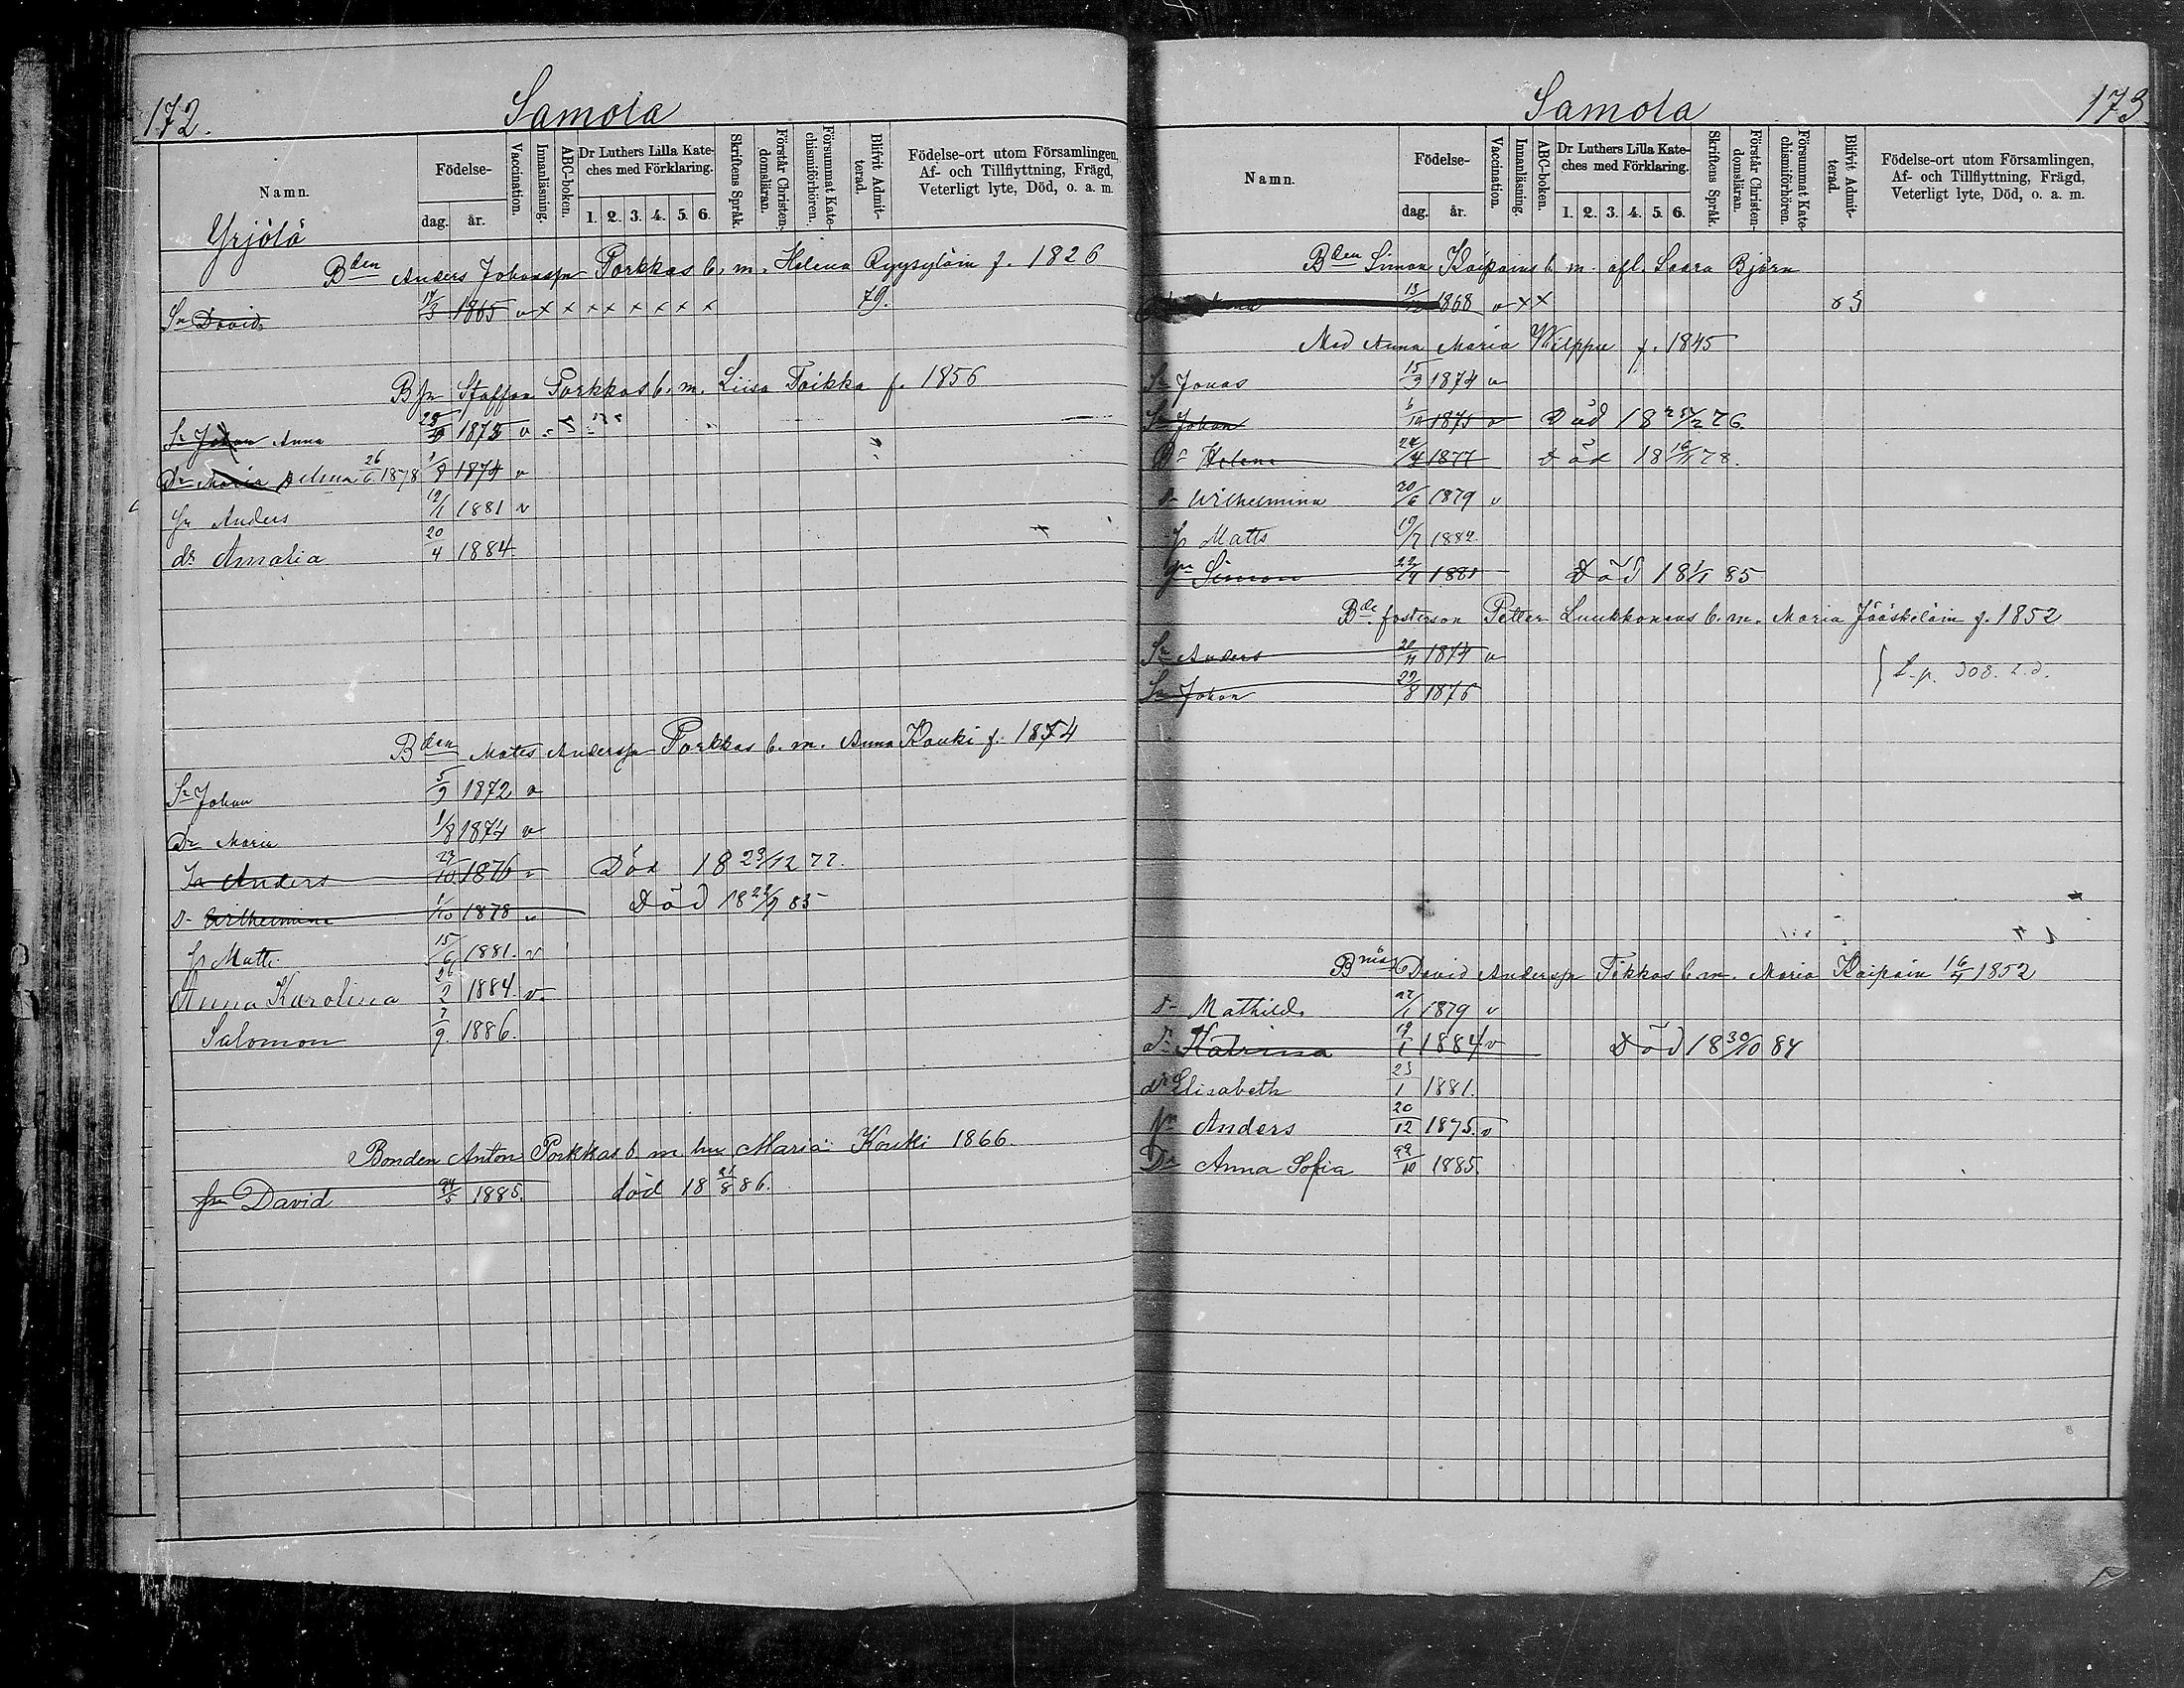 172.
Samola
Namn.
Födelse-
dag.
år.
Vaccination.
Innanläsning.
ABC-boken.
Dr Luthers Lilla Kate-
ches med Förklaring.
1. 2. 3. 4. 5. 6.
Skriftens Språk.
Förstår Christen-
domsläran.
Försummat Kate-
chismiförhören.
Blifvit Admit-
terad.
Födelse-ort utom Församlingen,
Af- och Tillflyttning, Frägd,
Veterligt lyte, Död, o. a. m.
Yrjölä
Bden Anders Johanssn Porkkas b. m. Helena Ryysyläin f. 1826
Sn David 1865 v x x x x x x x x 79.
Bsn Staffan Porkkas b. m. Liisa Toikka f. 1856
Sn Johan Anna 1873 v
Dr Maria Helena 26/6 1878 1/8 1874 v
Sn Anders 12/1 1881 v
dr Amalia 20/4 1884
Bden Matts Anderssn Porkkas b. m. Anna Kouki f. 1854
Sn Johan 5/9 1872 v
Dr Maria 1/8 1874 v
Sn Anders 23/10 1876 Död 18 23/12 77.
Dr Wilhelmina 1/10 1878 v Död 18 22/9 85
Sn Matts 15/6 1881. v
Anna Karolina 26/2 1884. v.
Salomon 7/9. 1886.
Bonden Anton Porkkas b m hu Maria Kouki 1866.
Sn David 24/5 1885. död 18 21/8 86.
Samola
173
Namn.
Födelse-
dag.
år.
Vaccination.
Innanläsning.
ABC-boken.
Dr Luthers Lilla Kate-
ches med Förklaring.
1. 2. 3. 4. 5. 6.
Skriftens Språk.
Förstår Christen-
domsläran.
Försummat Kate-
chismiförhören.
Blifvit Admit-
terad.
Födelse-ort utom Församlingen,
Af- och Tillflyttning, Frägd,
Veterligt lyte, Död, o. a. m.
Bden Simon Kaipains b. m. afl. Laara Björn
1868 v x x 83
Med Anna Maria Wilppu f. 1845
Sn Jonas 15/9 1874 v
Sn Johan 6/10 1875 v Död 18 25/2 76.
Dr Helena 24/4 1877 Död 18 16/11 78.
Dr Wilhelmina 20/6 1879 v
Sn Matts 19/7 1882.
Sn Simon 22/4 1881 Död 18 1/1 85
Bde fosterson Petter Luukkonens b. m. Maria Jääskeläin f. 1852
Sn Anders 20/11 1874 v
Sn Johan 29/8 1876
L. p. 308. L. d.
Bmåg David Anderssn Tikkas b m. Maria Kaipain 16/4 1852
Dr Mathilda 27/1 1879 v
Dr Katrina 19/1 1884 v Död 18 30/10 84
dr Elisabeth 23/1 1881.
Sn Anders 20/12 1875. v
Dr Anna Sofia 22/10 1885.